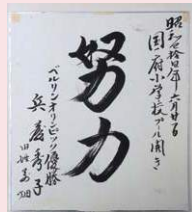 昭和四拾四年六月廿日
国府小学校プール開き
努力
ベルリンオリンピック優勝
兵藤秀子
旧姓前畑